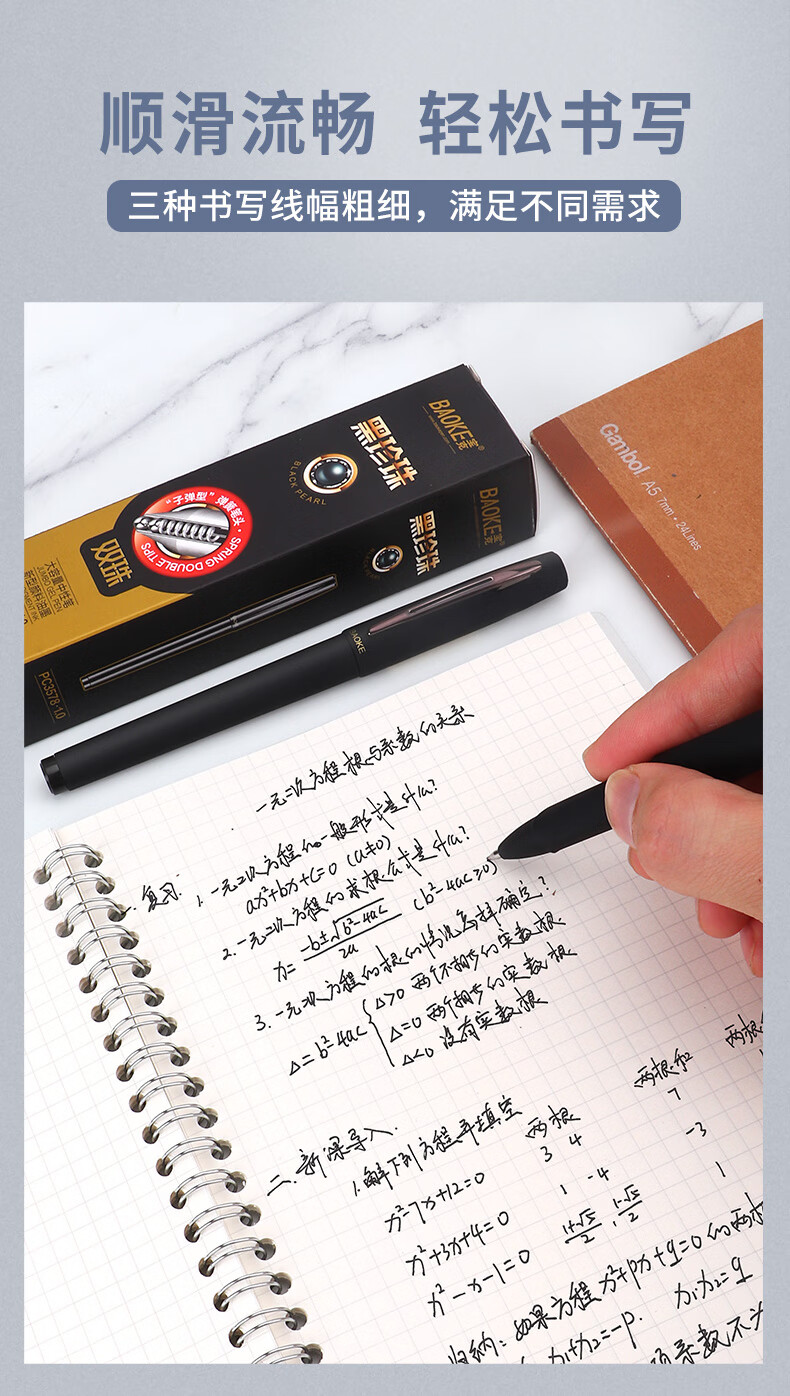 顺滑流畅 轻松书写
三种书写线幅粗细，满足不同需求
BAOKE宝克®
黑珍珠
BLACK PEARL
BAOKE宝克
黑珍珠
"子弹型"弹簧笔头
SPRING DOUBLE TIPS
双珠
大容量中性笔
JUMBO GEL PEN
PC3578-1.0
BAOKE
Gambol A5 7mm · 24Lines
一元二次方程根与系数的关系
一、复习: 1. 一元二次方程的一般形式是什么?
ax²+bx+c=0 (a≠0)
2. 一元二次方程的求根公式是什么?
x= -b±√b²-4ac / 2a (b²-4ac≥0)
3. 一元二次方程的根的情况怎样确定?
Δ=b²-4ac { Δ>0 两个不相等的实数根
Δ=0 两个相等的实数根
Δ<0 没有实数根
二、新课导入.
1.解下列方程并填空 两根 两根和 两根
x²-7x+12=0 3 4 7
x²+3x+4=0 1 -4 -3
x²-x-1=0 1+√5/2, 1-√5/2 1
归纳: 如果方程x²+px+q=0的两根
x₁+x₂=-p. x₁x₂=q
项系数不为